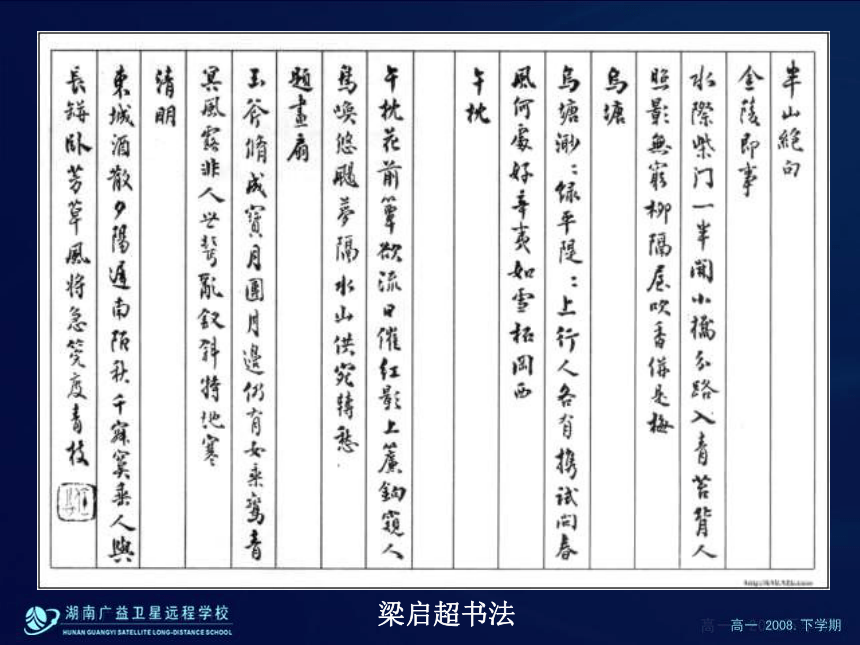 半山絕句
金陵即事
水際柴门一半開小橋分路入青苔背人
照影無窮柳隔屋吹香併是梅
烏塘
烏塘渺:綠平隄:上行人各有攜試问春
風何處好辛夷如雪柘岡西
午枕
午枕花前簟欲流日催紅影上簾鉤窺人
鳥喚悠颺夢隔水山供宛轉愁
題畫扇
玉斧脩成寶月團月邊仍有女乘鸞青
冥風露非人世鬢亂釵斜特地寒
清明
東城酒散夕陽遲南陌秋千寂寞垂人與
長缾臥芳草風將急筦度青枝
梁启超书法
湖南广益卫星远程学校
HUNAN GUANGYI SATELLITE LONG-DISTANCE SCHOOL
高一 2008.下学期